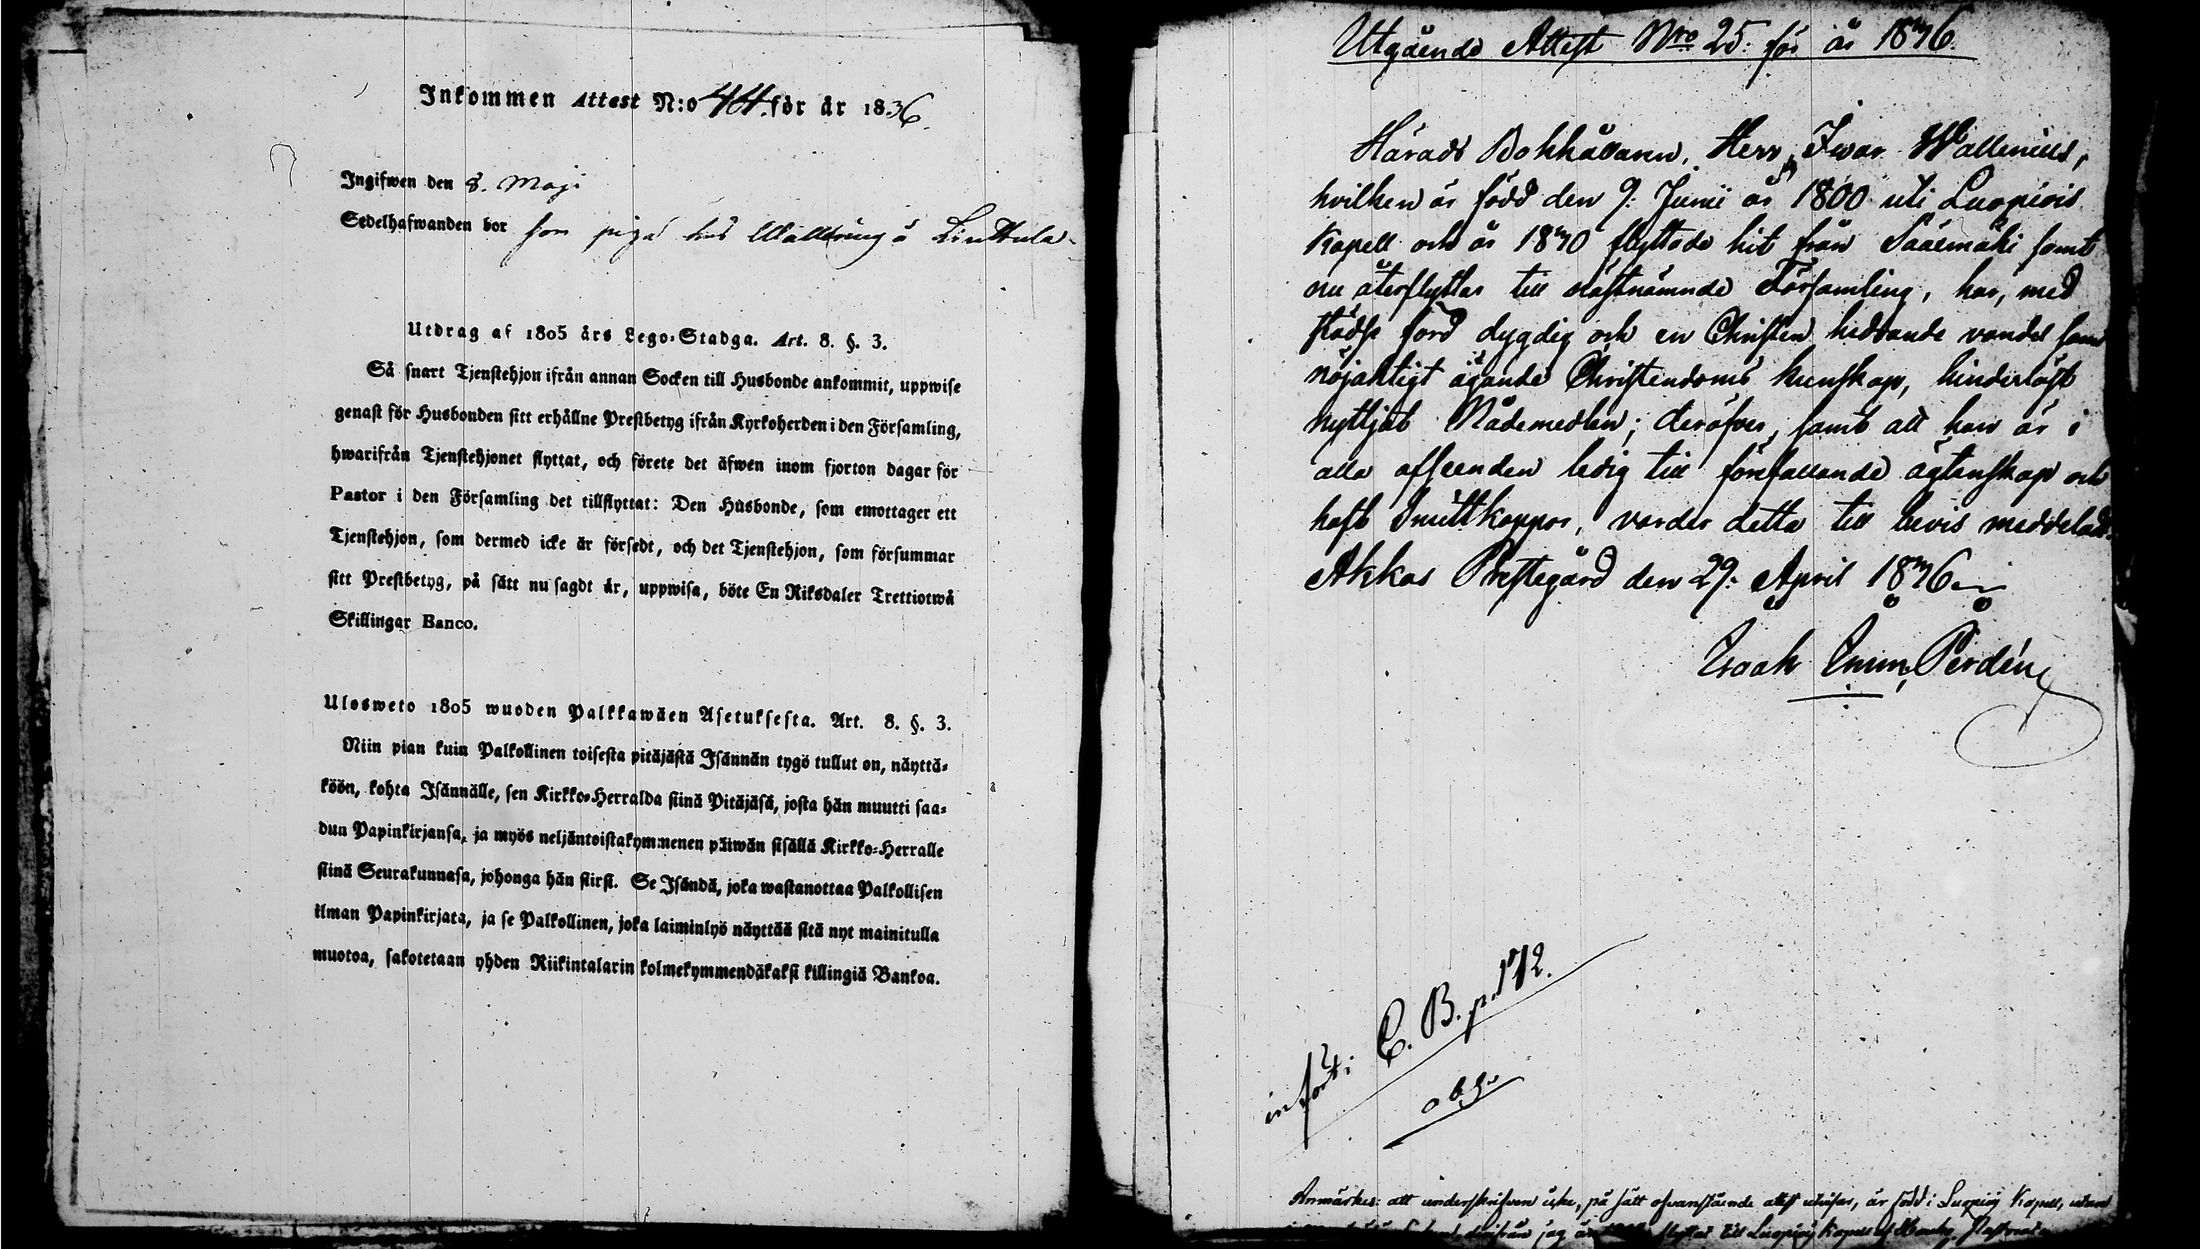 Inkommen Attest N:o 44. för år 1836.
Ingifwen den 8. Maji
Sedelhafwanden bor som piga hos Walldring å Linttula
Utdrag af 1805 års Lego-Stadga. Art. 8. §. 3.
Så snart Tjenstehjon ifrån annan Socken till Husbonde ankommit, uppwise
genast för Husbonden sitt erhållne Prestbetyg ifrån Kyrkoherden i den Församling,
hwarifrån Tjenstehjonet flyttat, och förete det äfwen inom fjorton dagar för
Pastor i den Församling det tillflyttat: Den Husbonde, som emottager ett
Tjenstehjon, som dermed icke är försedt, och det Tjenstehjon, som försummar
sitt Prestbetyg, på sätt nu sagdt är, uppwisa, böte En Riksdaler Trettiotwå
Skillingar Banco.
Ulosweto 1805 wuoden Palkkawäen Asetuksesta. Art. 8. §. 3.
Niin pian kuin Palkollinen toisesta pitäjästä Isännän tygö tullut on, näyttä-
köön, kohta Isännälle, sen Kirkko-Herralda siinä Pitäjäsä, josta hän muutti saa-
dun Papinkirjansa, ja myös neljäntoistakymmenen päiwän sisällä Kirkko-Herralle
siinä Seurakunnasa, johonga hän siirsi. Se Isändä, joka wastanottaa Palkollisen
ilman Papinkirjata, ja se Palkollinen, joka laiminlyö näyttää sitä nyt mainitulla
muotoa, sakotetaan yhden Riikintalarin kolmekymmendäkaksi killingiä Bankoa.
Utgående Attest Nro 25. för år 1836.
Härads Bokhållaren, Herr Iwar Wallenius,
hvilken är född den 9. Junii år 1800 uti Luopiois
Kapell och år 1830 flyttade hit från Sääsmäki samt
nu återflyttar till nästnämnde Församling, har, med
städse ford dygdig och en Christen hedrande vandel samt
nöjaktigt ägande Christendoms kunskap, hinderlöst
nyttjat Nådemedlen; deröfver, samt att han är i
alla afseenden ledig till förefallande ägtenskap och
haft Smittkoppor, varder detta till bevis meddeladt.
Akkas Prestegård den 29. April 1836
Isaak Emm. Perdén
infört i C. B. p. 172.
Anmärkes: att underskrifven icke, på sätt ofvanstående attest utvisar, är född i Luopiois Kapell, utan
jag är flyttat till Luopiois Kapell